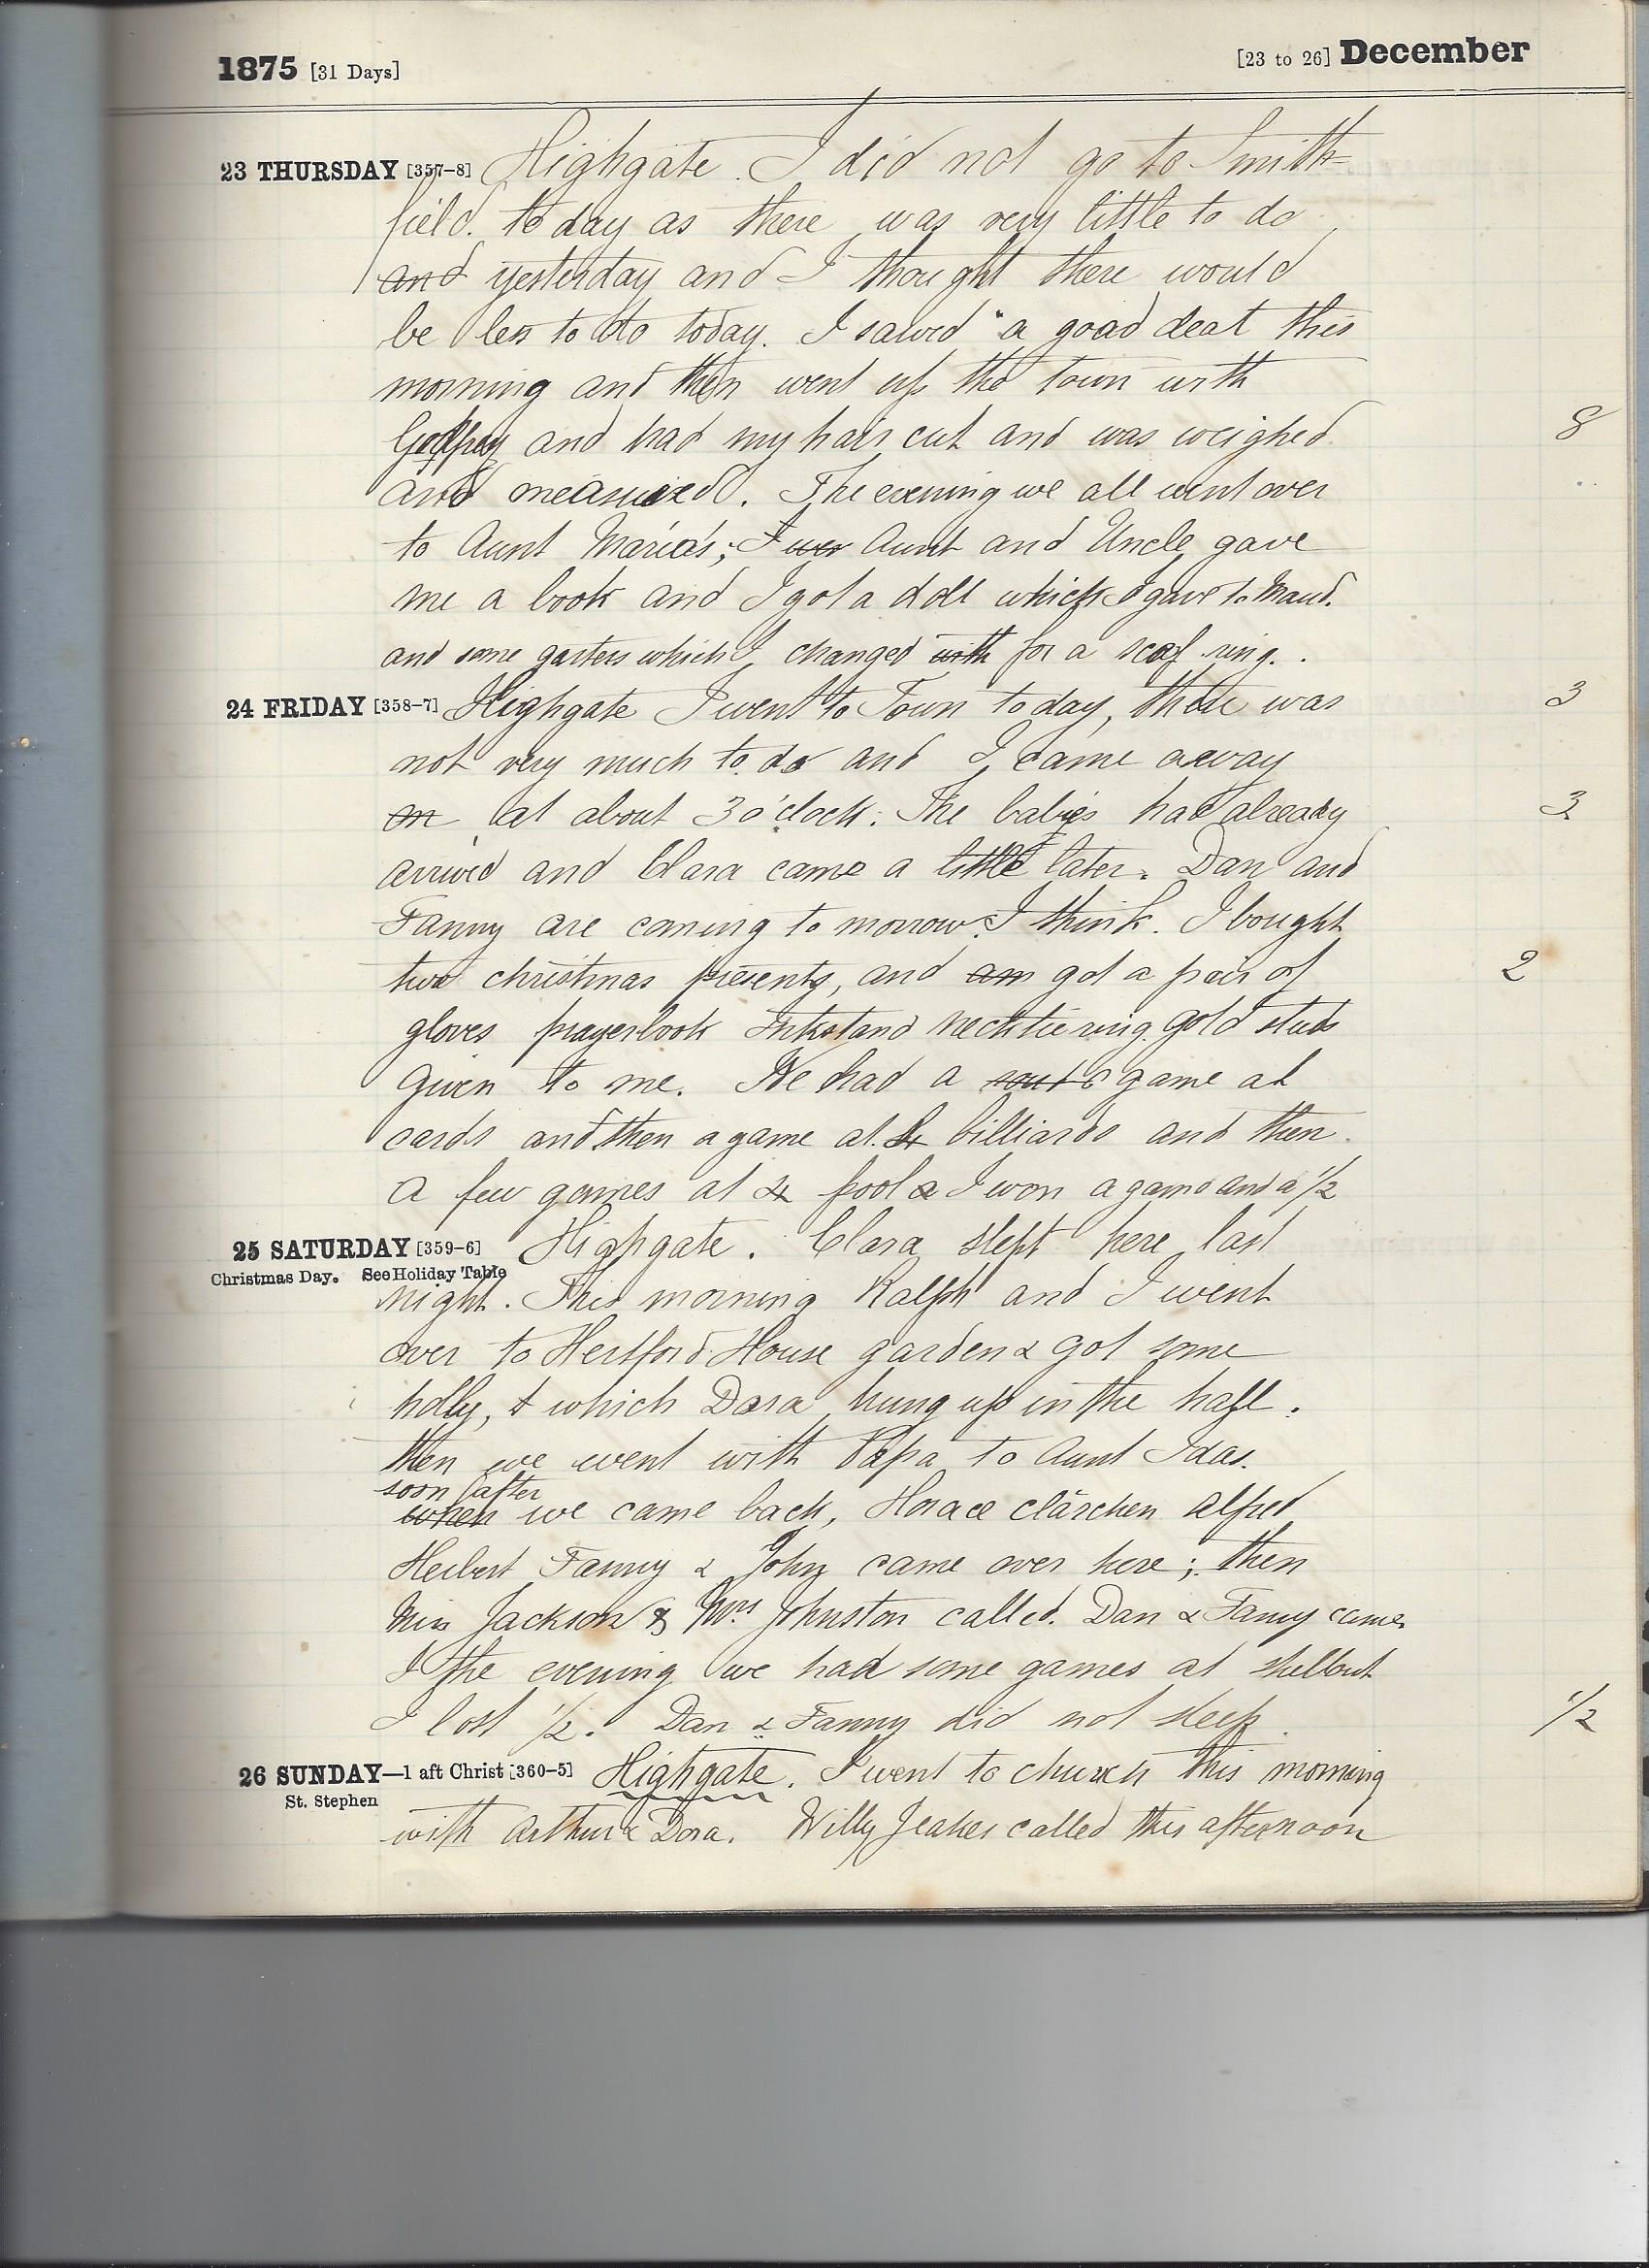 1875 [31 Days] [23 to 26] December
23 THURSDAY [357-8] Highgate. I did not go to Smith=
field. to day as there was very little to do
and yesterday and I thought there would
be less to do today. I sawed a good deal this
morning and then went up the town with
Godfrey and had my hair cut and was weighed 8
and measured. The evening we all went over
to Aunt Maria's; I wer Aunt and Uncle gave
me a book and I got a doll which I gave to Maud.
and some garters which I changed with for a scarf ring.
24 FRIDAY [358-7] Highgate I went to Town to day, there was 3
not very much to do and I came away
on at about 3 o'clock. The babies had already 3
arrived and Clara came a little later. Dan and
Fanny are coming to morrow I think. I bought
two christmas presents, and am got a pair of 2
gloves prayerbook Inkstand necktie ring gold studs
given to me. We had a game at
cards and then a game at billiards and then
a few games at pool & I won a game and a 1/2
25 SATURDAY [359-6] Highgate. Clara slept here last
Christmas Day. See Holiday Table
night. This morning Ralph and I went
over to Hertford House garden & got some
holly, & which Dora hung up in the hall.
then we went with Papa to Aunt Idas.
soon after
when we came back, Horace clärchen alfred
Herbert Fanny & John came over here; then
Miss Jackson & Mrs Johnston called. Dan & Fanny came
I the evening we had some games at shellout
I lost 1/2. Dan & Fanny did not sleep. 1/2
26 SUNDAY—1 aft Christ [360-5] Highgate. I went to church this morning
St. Stephen
with Arthur & Dora. Willy Jeakes called this afternoon